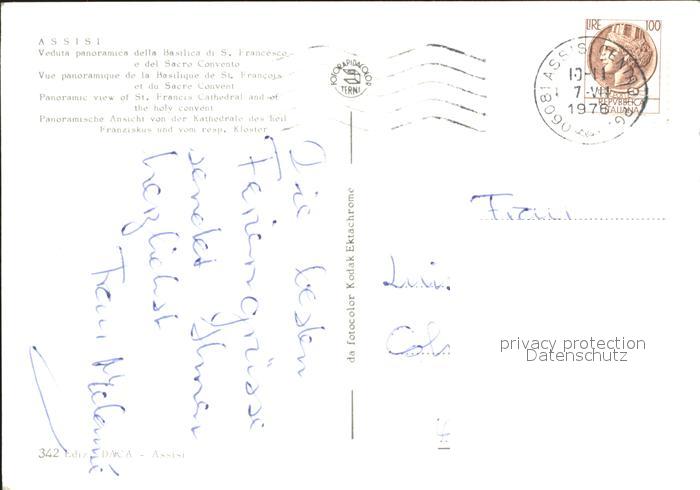 ASSISI
Veduta panoramica della Basilica di S. Francesco
e del Sacro Convento
Vue panoramique de la Basilique de St. François
et du Sacre Convent
Panoramic view of St. Francis Cathedral and of
the holy convent
Panoramische Ansicht von der Kathedrale des heil
Franziskus und vom resp. Kloster
FOTORAPIDACOLOR
TERNI
LIRE 100
REPUBBLICA
ITALIANA
06081 ASSISI
10-11
7-VII
1976
Die besten
Feriengrüsse
sendet Ihnen
herzlichst
Frau Melanie
da fotocolor Kodak Ektachrome
Frau
Luis
privacy protection
Datenschutz
342 Ediz. DACA - Assisi